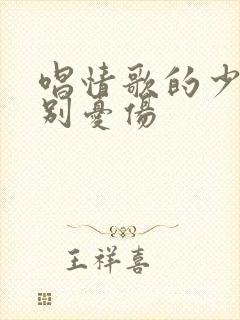 唱情歌的少
别憂傷
王祥喜